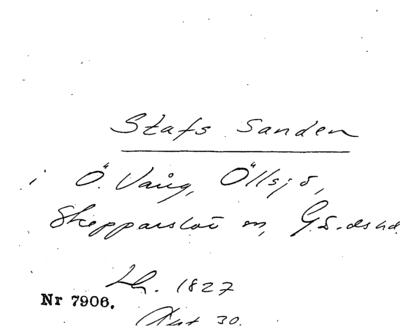 Stafs Sanden
i Ö. Vång, Öllsjö,
Skepparslöv sn, G.s.
Lh. 1827
Nr 7906.
30.